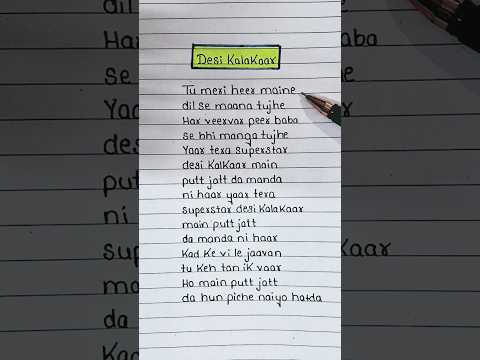 Desi Kalakaar
Tu meri heer maine
dil se maana tujhe
Har veervar peer baba
se bhi manga tujhe
Yaar tera superstar
desi Kalkaar main
putt jatt da manda
ni haar yaar tera
superstar desi Kalakaar
main putt jatt
da manda ni haar
Kad Ke vi le jaavan
tu Keh tan ik vaar
Ho main putt jatt
da hun piche naiyo hatda